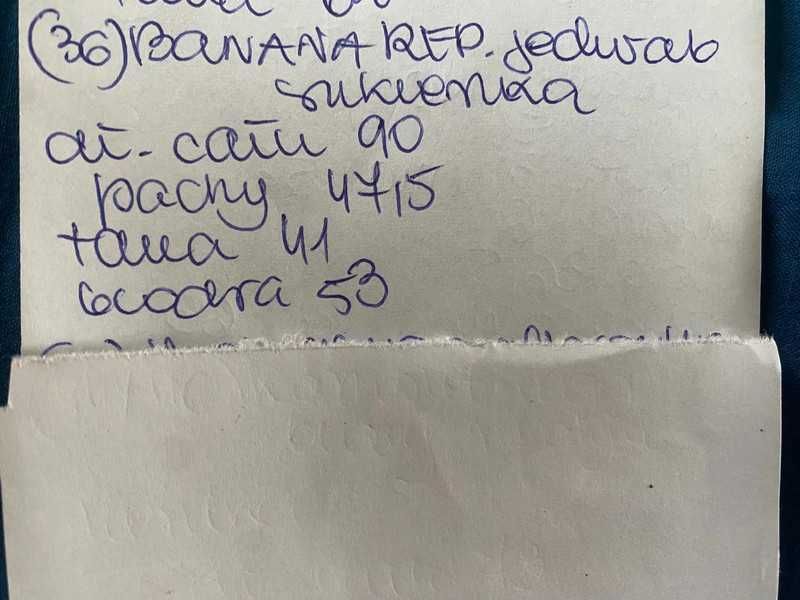 (36) BANANA REP. jedwab
sukienka
dł. całk 90
pachy 47,5
talia 41
biodra 53